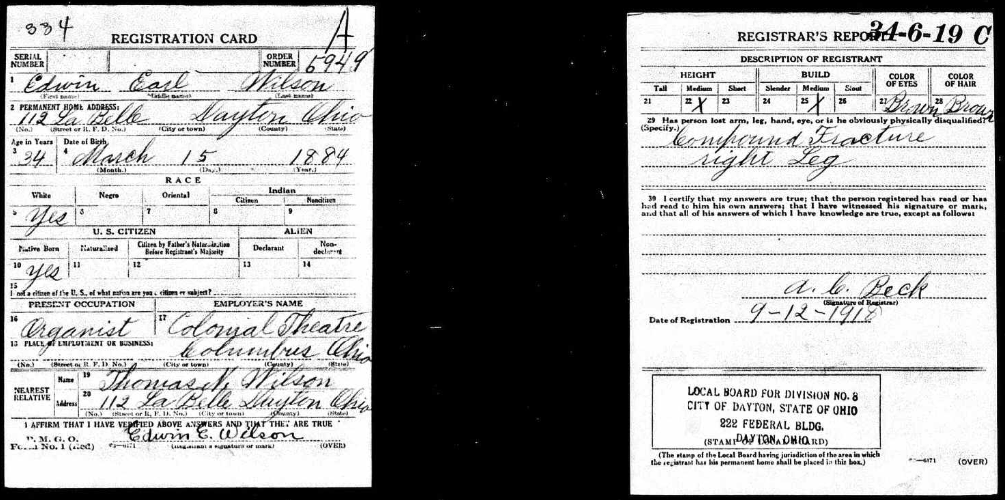 334
A
REGISTRATION CARD
SERIAL NUMBER
ORDER NUMBER 5949
1 Edwin Earl Wilson
(First name) (Middle name) (Last name)
2 PERMANENT HOME ADDRESS:
112 La Belle Dayton Ohio
(No.) (Street or R. F. D. No.) (City or town) (County) (State)
Age in Years Date of Birth
3 34 4 March 15 1884
(Month.) (Day.) (Year.)
RACE
White Negro Oriental Indian
Citizen Noncitizen
5 Yes 6 7 8 9
U. S. CITIZEN ALIEN
Native Born Naturalized Citizen by Father's Naturalization Before Registrant's Majority Declarant Non-declarant
10 Yes 11 12 13 14
15
If not a citizen of the U. S., of what nation are you a citizen or subject?
PRESENT OCCUPATION EMPLOYER'S NAME
16 Organist 17 Colonial Theatre
18 PLACE OF EMPLOYMENT OR BUSINESS:
Columbus Ohio
(No.) (Street or R. F. D. No.) (City or town) (County) (State)
NEAREST RELATIVE Name 19 Thomas N. Wilson
Address 20 112 La Belle Dayton Ohio
(No.) (Street or R. F. D. No.) (City or town) (County) (State)
I AFFIRM THAT I HAVE VERIFIED ABOVE ANSWERS AND THAT THEY ARE TRUE
P. M. G. O. Edwin E. Wilson
Form No. 1 (Red) (Registrant's signature or mark) (OVER)
REGISTRAR'S REPORT 34-6-19 C
DESCRIPTION OF REGISTRANT
HEIGHT BUILD COLOR OF EYES COLOR OF HAIR
Tall Medium Short Slender Medium Stout
21 22 X 23 24 25 X 26 27 Brown 28 Brown
29 Has person lost arm, leg, hand, eye, or is he obviously physically disqualified?
(Specify.) Compound Fracture
right Leg
30 I certify that my answers are true; that the person registered has read or has
had read to him his own answers; that I have witnessed his signature or mark,
and that all of his answers of which I have knowledge are true, except as follows:
A. C. Beck
(Signature of Registrar)
Date of Registration 9-12-1918
LOCAL BOARD FOR DIVISION NO. 8
CITY OF DAYTON, STATE OF OHIO
222 FEDERAL BLDG.
DAYTON, OHIO
(STAMP OF LOCAL BOARD)
(The stamp of the Local Board having jurisdiction of the area in which
the registrant has his permanent home shall be placed in this box.)
(OVER)